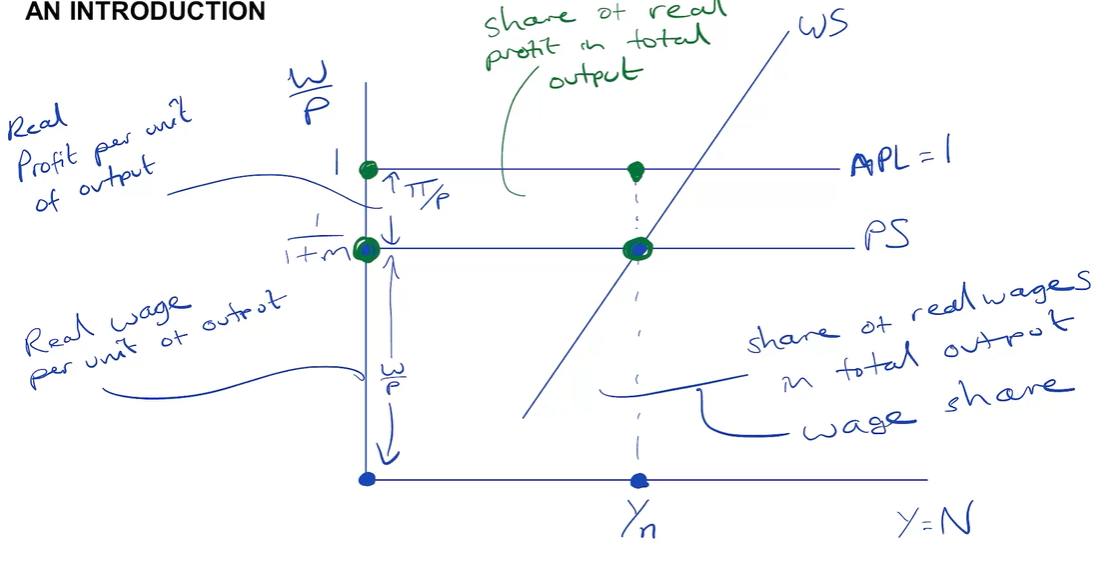 AN INTRODUCTION
share of real
profit in total
output
WS
W/P
Real
Profit per unit
of output
1
APL = 1
π/P
1/1+m
PS
Real wage
per unit of output
W/P
share of real wages
in total output
wage share
Yn
Y=N